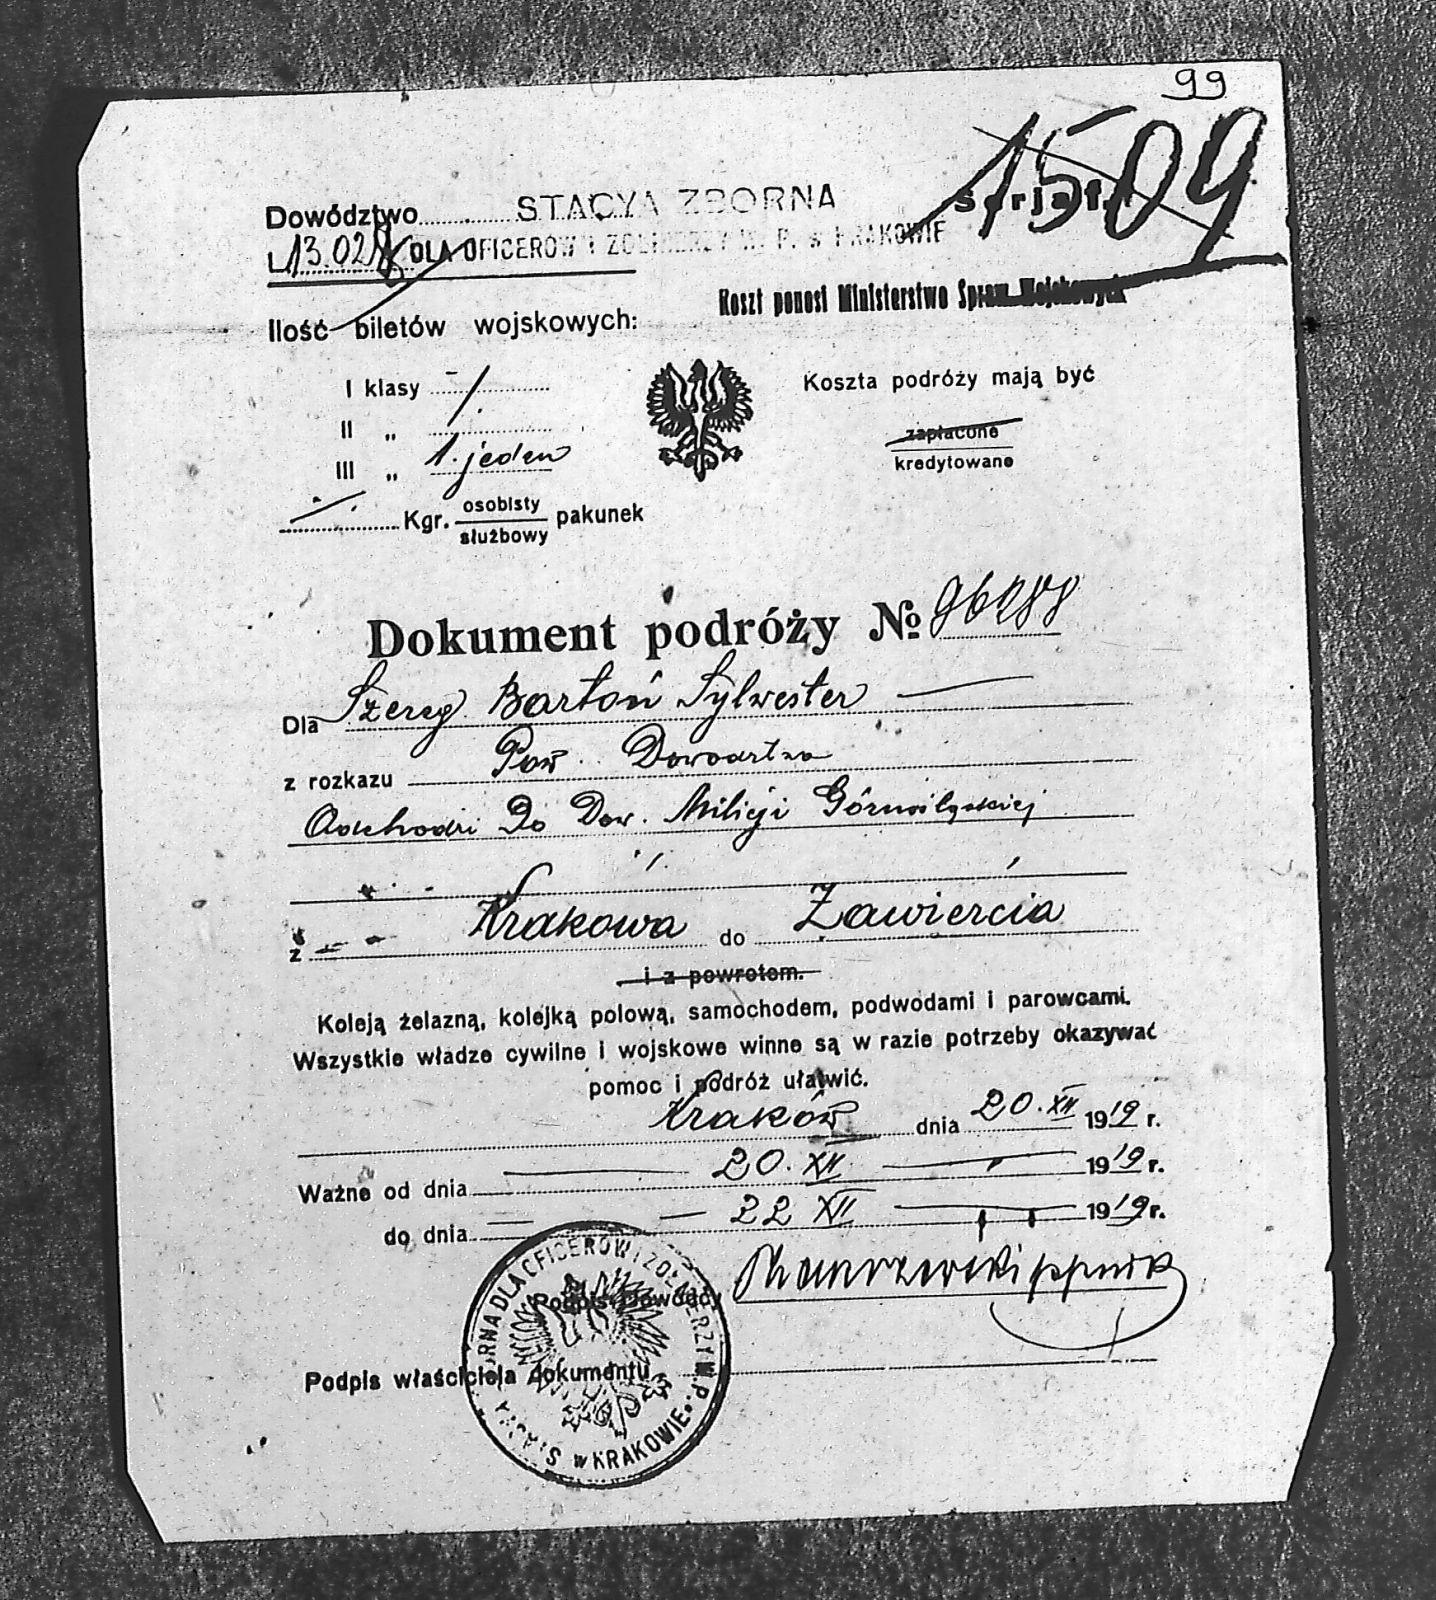 99
1509
Dowództwo STACYA ZBORNA
L. 13.028 DLA OFICERÓW I ŻOŁNIERZY W. P. w KRAKOWIE
Koszt ponosi Ministerstwo Spraw Wojskowych
Ilość biletów wojskowych:
I klasy
Koszta podróży mają być
II „
zapłacone
III „ 1. jeden
kredytowane
Kgr. osobisty
służbowy pakunek
Dokument podróży №
Dla Szereg. Bartoń Sylwester
z rozkazu Pow. Dowództwa
Odchodzi Do Dow. Milicji Górnośląskiej
z Krakowa do Zawiercia
i z powrotem.
Koleją żelazną, kolejką polową, samochodem, podwodami i parowcami.
Wszystkie władze cywilne i wojskowe winne są w razie potrzeby okazywać
pomoc i podróż ułatwić.
Kraków dnia 20. XII 1919 r.
Ważne od dnia 20. XII 1919 r.
do dnia 22 XII 1919 r.
Podpis Dowódcy
Podpis właściciela dokumentu
STACYA ZBORNA DLA OFICERÓW I ŻOŁNIERZY W.P. w KRAKOWIE